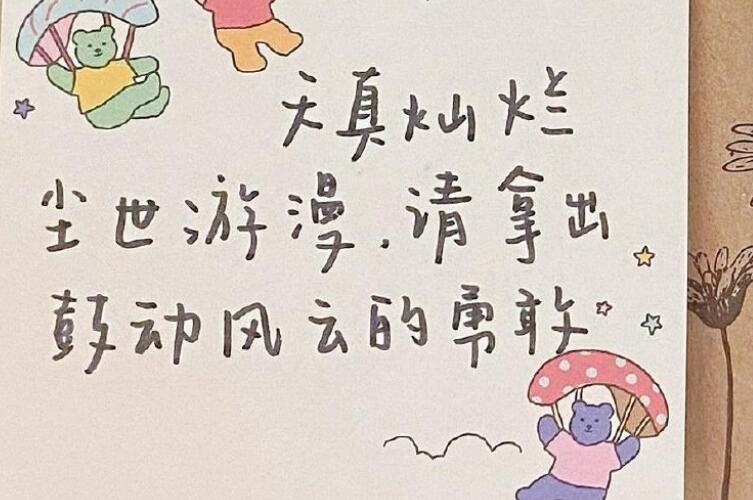 天真灿烂
尘世游漫.请拿出
鼓动风云的勇敢